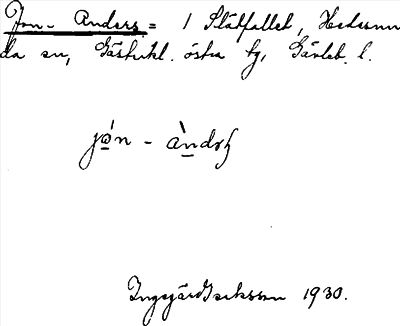 Jon-Anders = 1 Slätfallet, Hedesun
da sn, Gästrikl. östra tg, Gävleb. l.
jɷ́n - àndəʂ
Ingegärd Isaksson 1930.